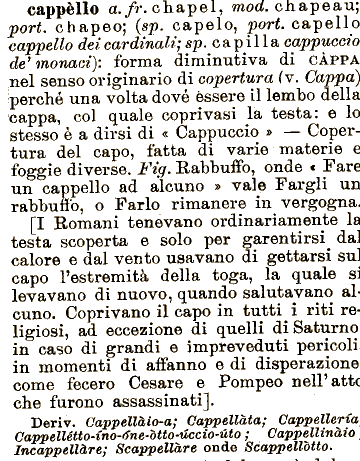 cappèllo a. fr. chapel, mod. chapeau;
port. chapeo; (sp. capelo, port. capello
cappello dei cardinali; sp. capilla cappuccio
de' monaci): forma diminutiva di CÀPPA
nel senso originario di copertura (v. Cappa)
perché una volta dové essere il lembo della
cappa, col quale coprivasi la testa: e lo
stesso è a dirsi di « Cappuccio » — Coper-
tura del capo, fatta di varie materie e
foggie diverse. Fig. Rabbuffo, onde « Fare
un cappello ad alcuno » vale Fargli un
rabbuffo, o Farlo rimanere in vergogna.
[I Romani tenevano ordinariamente la
testa scoperta e solo per garentirsi dal
calore e dal vento usavano di gettarsi sul
capo l'estremità della toga, la quale si
levavano di nuovo, quando salutavano al-
cuno. Coprivano il capo in tutti i riti re-
ligiosi, ad eccezione di quelli di Saturno
in caso di grandi e impreveduti pericoli
in momenti di affanno e di disperazione
come fecero Cesare e Pompeo nell'atto
che furono assassinati].
Deriv. Cappellàio-a; Cappellàta; Cappellería
Cappellétto-íno-óne-òtto-úccio-úto; Cappellinàio
Incappellàre; Scappellàre onde Scappellòtto.